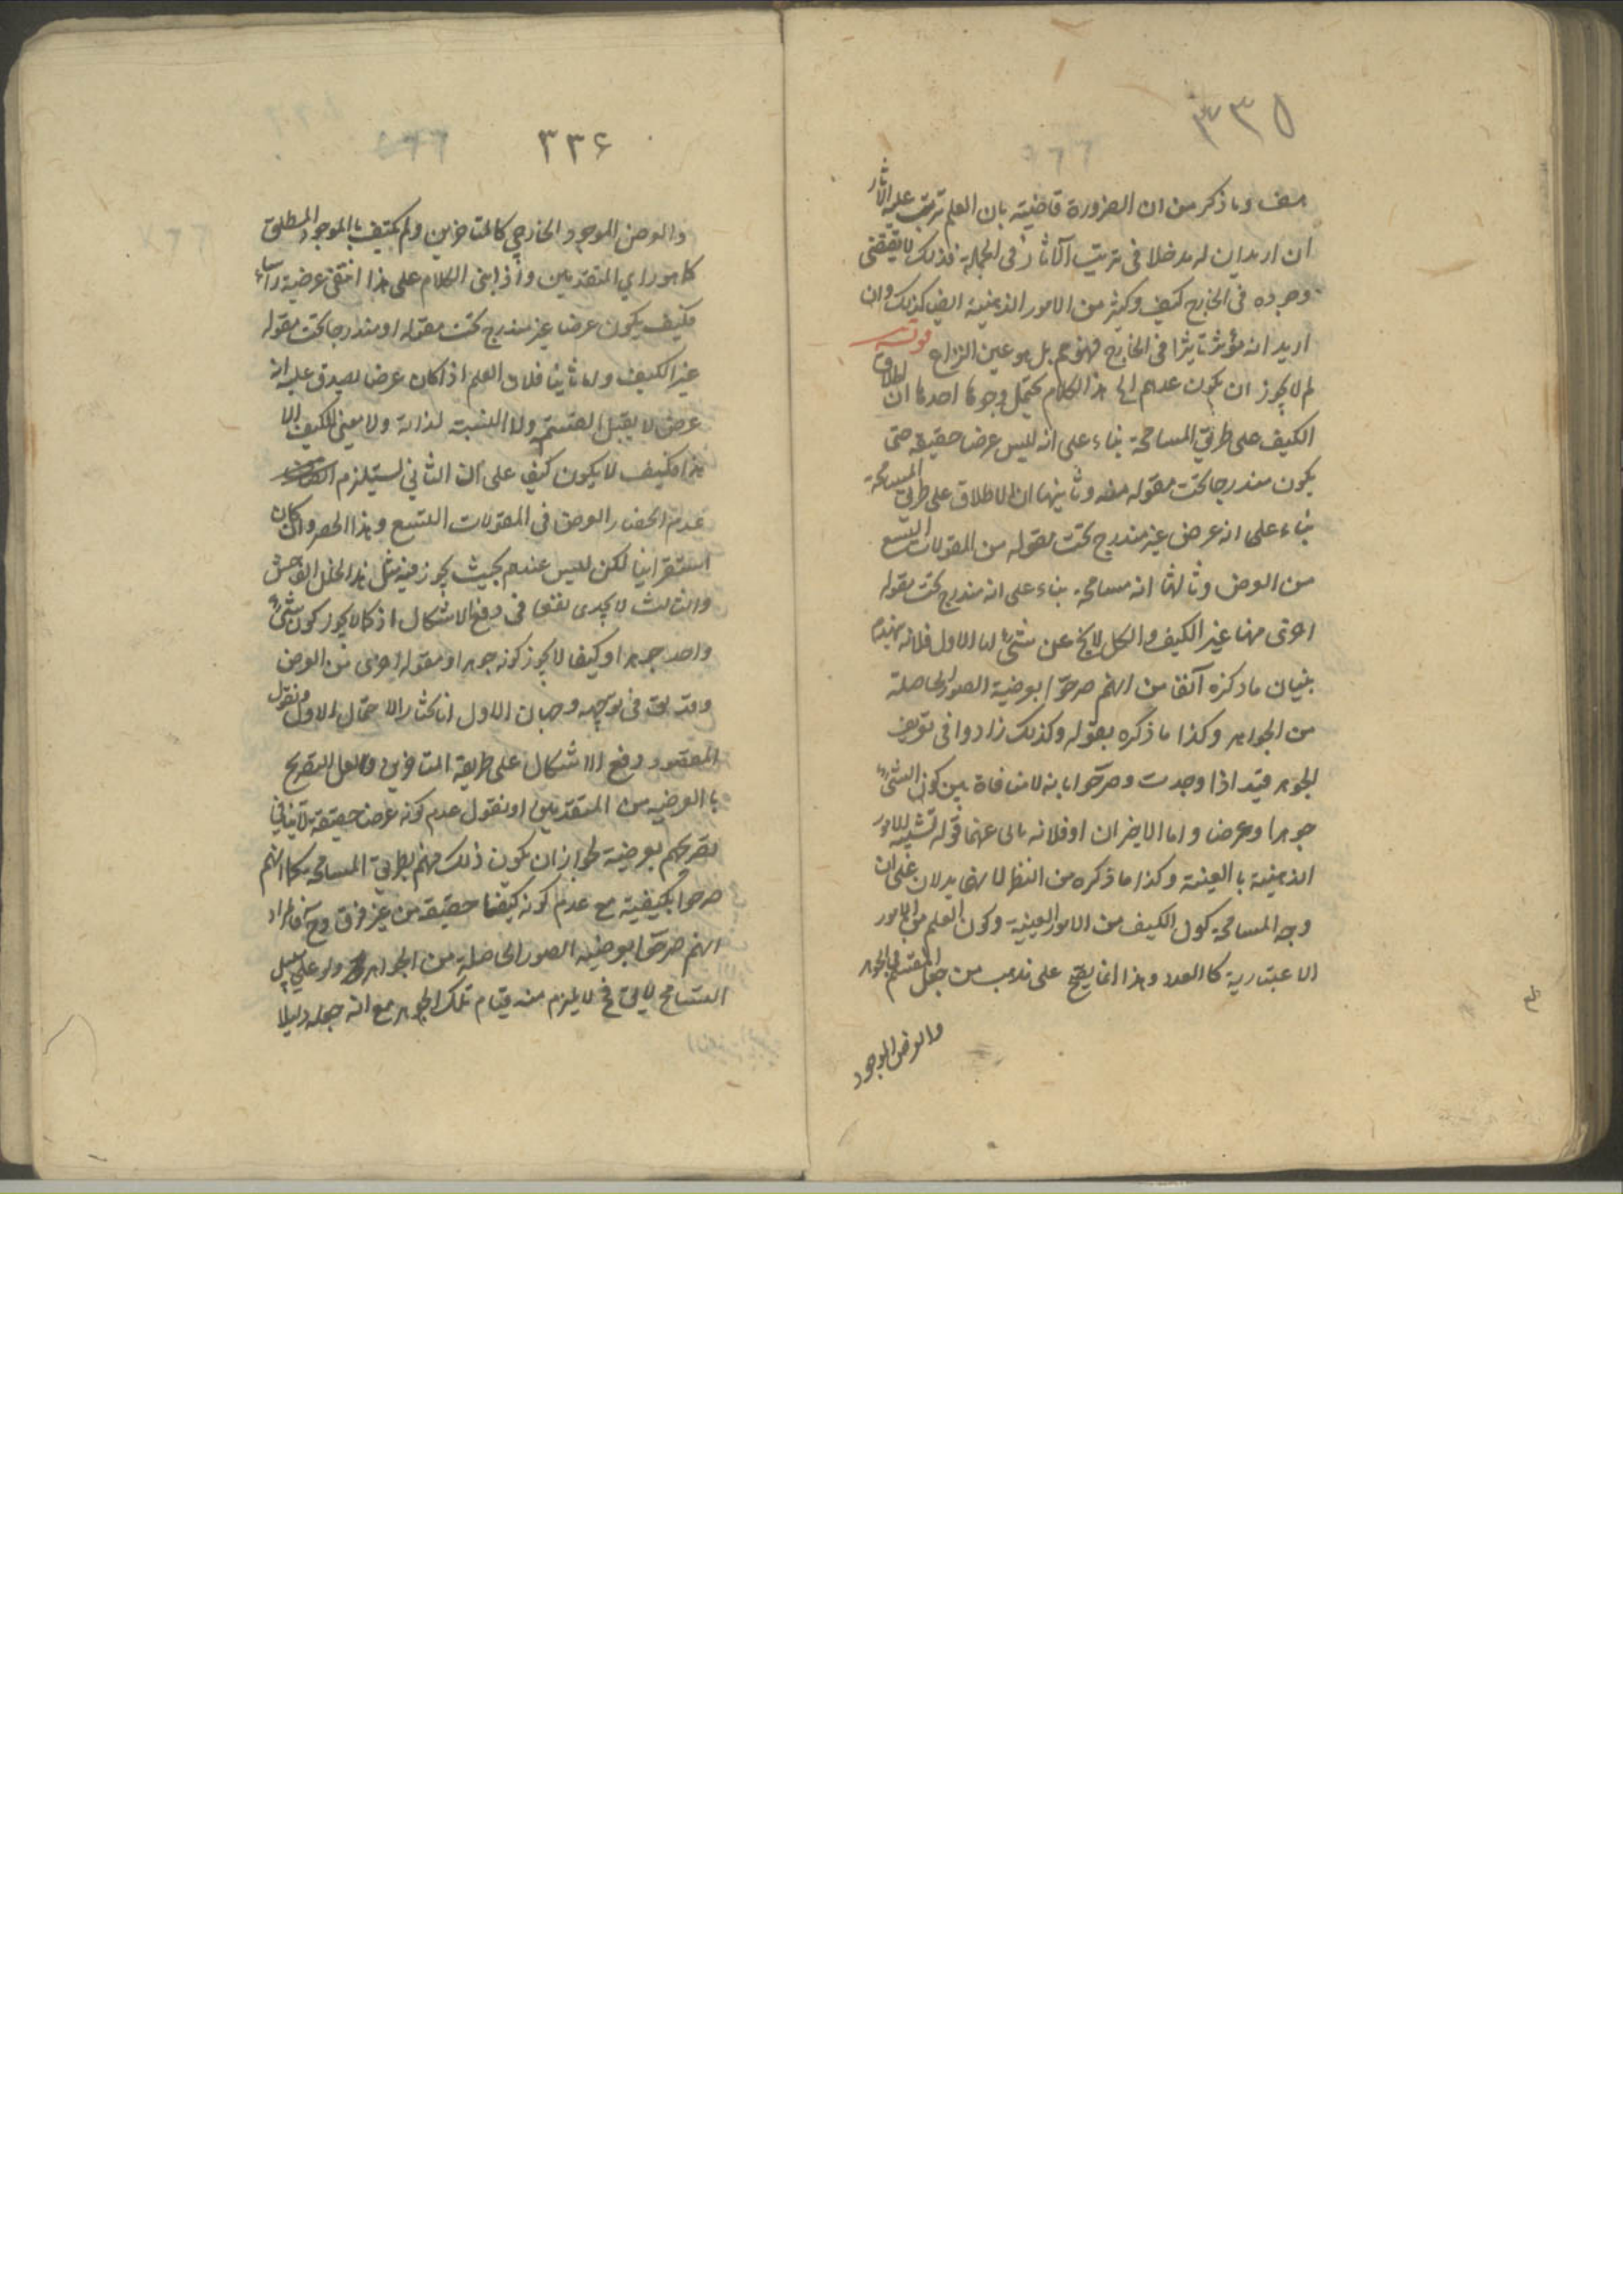 ٣٣٥
وما ذكر من ان الضرورة قاضية بان العلم يترتب عليه الآثار
ان اريد ان له مدخلا فى ترتيب الآثار فى الجملة فذلك لا يقتضى
وجوده فى الخارج كيف وكثير من الامور الذهنية ايضا كذلك وان
اريد انه مؤثر تاثيرا فى الخارج فهو مم بل هو عين النزاع قوله
لم لا يجوز ان يكون عدهم الخ هذا الكلام يحتمل وجوها احدها ان اطلاق
الكيف على طريق المسامحة بناء على انه ليس عرضا حقيقة حتى
يكون مندرجا تحت مقولة منه وثانيها ان الاطلاق على طريق المسامحة
بناء على انه عرض غير مندرج تحت مقولة من المقولات التسع
من العرض وثالثها انه مسامحة بناء على انه مندرج تحت مقولة
اخرى منها غير الكيف والكل لا يخ عن شئ اما الاول فلانه يهدم
بنيان ما ذكره آنفا من انهم صرحوا بعرضية الصور الحاصلة
من الجواهر وكذا ما ذكره بقوله وكذلك زادوا فى تعريف
الجوهر قيد اذا وجدت وصرحوا بانه لا منافاة بين كون الشئ
جوهرا وعرضا واما الاخيران فلانه يابى عنهما قوله تشبيه للامور
الذهنية بالعينية وكذا ما ذكره من النظر لانهما يدلان على ان
وجه المسامحة كون الكيف من الامور العينية وكون العلم من الامور
الاعتبارية كالعدد وهذا انما يصح على مذهب من جعل المقسم فى الجوهر
والعرض الموجود
٣٣۶
والعرض الموجود الخارجي كالمتاخرين ولم يكتف بالموجود المطلق
كما هو راي المتقدمين واذا بنى الكلام على هذا انتفى عرضية راسا
فكيف يكون عرضا غير مندرج تحت مقولة او مندرجا تحت مقولة
غير الكيف واما ثانيا فلان العلم اذا كان عرضا يصدق عليه انه
عرض لا يقبل القسمة ولا النسبة لذاته ولا معنى للكيف الا
هذا فكيف لا يكون كيفا على ان الثاني يستلزم
عدم انحصار العرض فى المقولات التسع وهذا الحصر وان كان
استقرائيا لكن ليس عندهم بحيث يجوز فيه مثل هذا الخلل الفاحش
والثالث لا يجدى نفعا فى دفع الاشكال اذ كما لا يجوز كون شئ
واحد جوهرا وكيفا لا يجوز كونه جوهرا ومقولة اخرى من العرض
وقد يق فى توجيهه وجهان الاول انا نختار الاحتمال الاول ونقول
المقصود دفع الاشكال على طريقة المتاخرين ولعل التصريح
بالعرضيه من المتقدمين او نقول عدم كونه عرضا حقيقة لا ينافي
تصريحهم بعرضية لجواز ان يكون ذلك منهم بطريق المسامحة كما انهم
صرحوا بكيفية مع عدم كونه كيفا حقيقة من غير فرق وح فالمراد
انهم صرحوا بعرضية الصور الحاصلة من الجواهر ولو على سبيل
التسامح لا يق فح لا يلزم منه قيام تلك الجواهر مع انه جعله دليلا